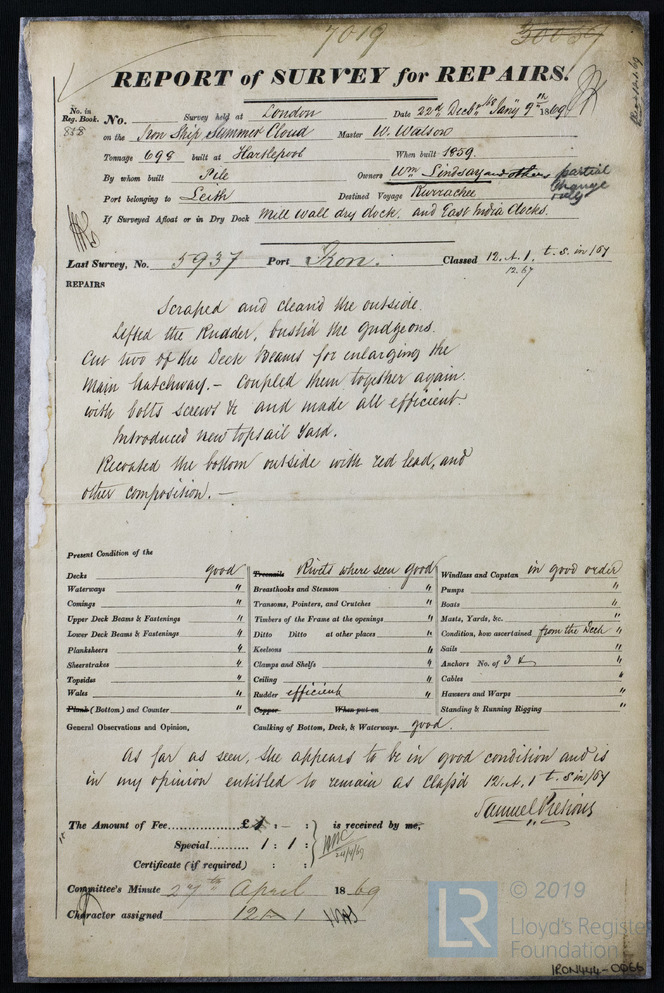 7019
REPORT of SURVEY for REPAIRS.
No. in Reg. Book. 818 No. Survey held at London Date 22nd Decbr /68 Jany 9th 1869
on the Iron Ship Summer Cloud Master W. Watson
Tonnage 698 built at Hartlepool When built 1859
By whom built Pile Owners Wm Lindsay and others partial change only
Port belonging to Leith Destined Voyage Kurrachee
If Surveyed Afloat or in Dry Dock Mill wall dry dock. and East India Docks.
Last Survey, No. 5937 Port Iron. Classed 12. A. 1. t. s. in /67
12.67
REPAIRS
Scraped and clean'd the outside.
Lifted the Rudder, bush'd the gudgeons.
Cut two of the Deck Beams for enlarging the
Main hatchway. – Coupled them together again.
with bolts screws &c and made all efficient.
Introduced new topsail Yard.
Recoated the bottom outside with red lead, and
other composition. –
Present Condition of the
Decks good Treenails Rivets where seen good Windlass and Capstan in good order
Waterways " Breasthooks and Stemson " Pumps "
Comings " Transoms, Pointers, and Crutches " Boats "
Upper Deck Beams & Fastenings " Timbers of the Frame at the openings " Masts, Yards, &c. "
Lower Deck Beams & Fastenings " Ditto Ditto at other places " Condition, how ascertained from the Deck "
Planksheers " Keelsons " Sails "
Sheerstrakes " Clamps and Shelfs " Anchors No. of 3 & "
Topsides " Ceiling " Cables "
Wales " Rudder efficient Hawsers and Warps "
Plank (Bottom) and Counter " Copper When put on Standing & Running Rigging "
General Observations and Opinion, Caulking of Bottom, Deck, & Waterways. good.
As far as seen, she appears to be in good condition and is
in my opinion entitled to remain as Class'd 12. A. 1 t. s. in /67
Samuel Pretious
The Amount of Fee £1 : – : is received by me,
Special 1 : 1 :
24/4/69
Certificate (if required) : :
Committee's Minute 27th April 1869
Character assigned 12 A 1
© 2019
LR Lloyd's Register
Foundation
IRON444-0066